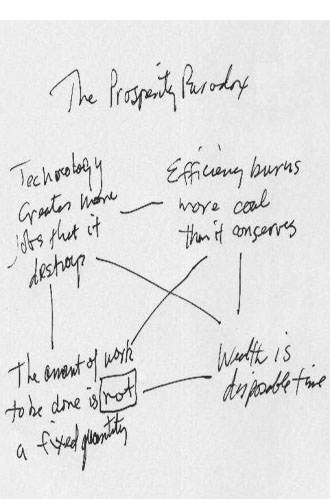 The Prosperity Paradox
Technology
Creates more
jobs that it
destroys
Efficiency burns
more coal
than it conserves
The amount of work
to be done is not
a fixed quantity
Wealth is
disposable time